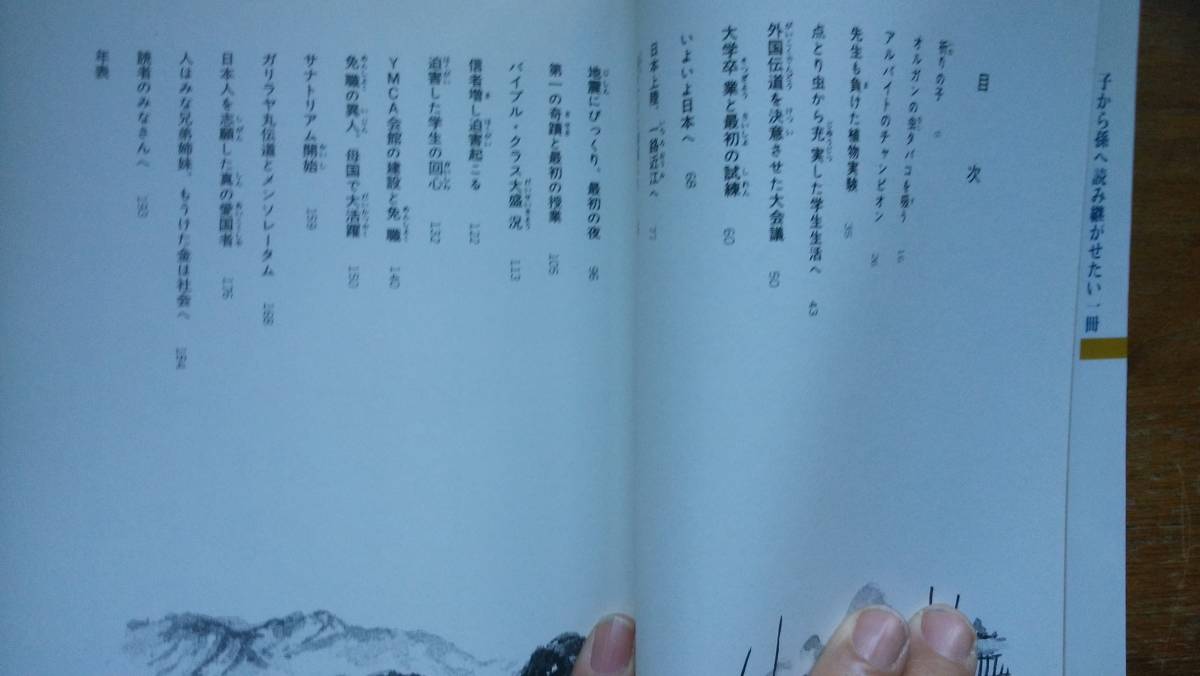 子から孫へ読み継がせたい一冊
目次
祈りの子 6
オルガンの金タバコを吸う 16
アルバイトのチャンピオン 26
先生も負けた植物実験 35
点とり虫から充実した学生生活へ 43
外国伝道を決意させた大会議 50
大学卒業と最初の試練 60
いよいよ日本へ 68
日本上陸、一路近江へ 77
地震にびっくり、最初の夜 96
第一の奇蹟と最初の授業 105
バイブル・クラス大盛況 113
信者増し迫害起こる 122
迫害した学生の回心 132
YMCA会館の建設と免職 140
免職の異人。母国で大活躍 150
サナトリアム開始 159
ガリラヤ丸伝道とメンソレータム 168
日本人を志願した真の愛国者 176
人はみな兄弟姉妹、もうけた金は社会へ 184
読者のみなさんへ
年表